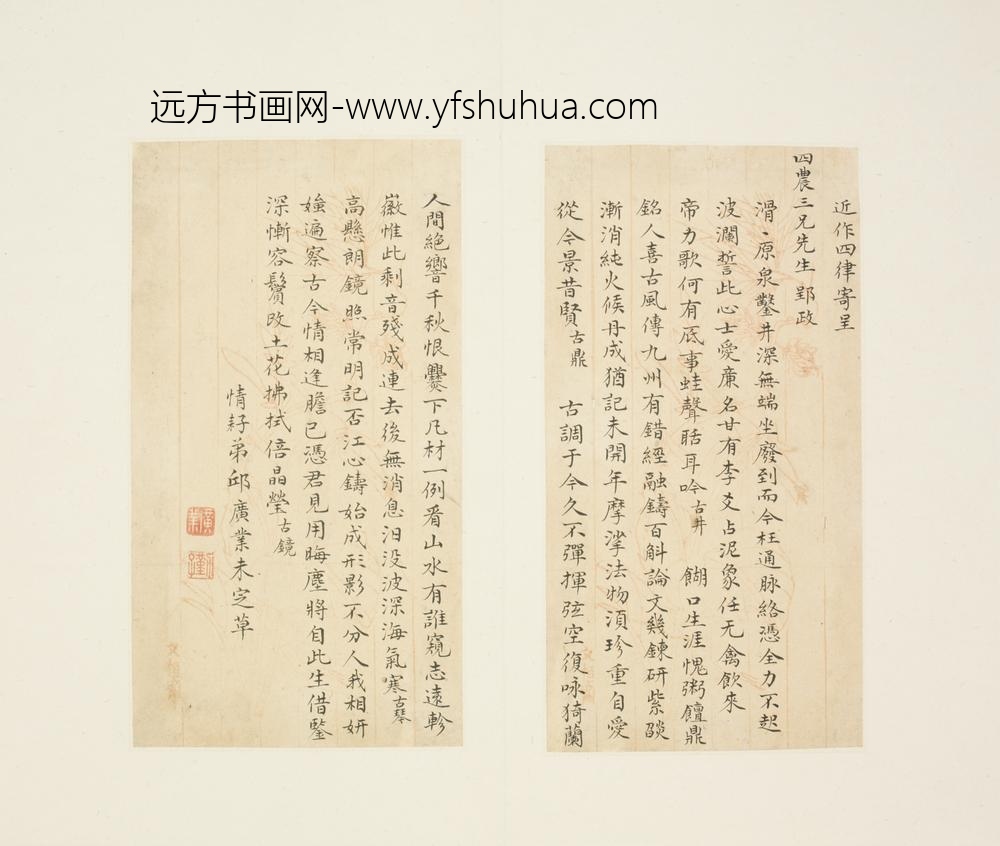 远方书画网-www.yfshuhua.com
近作四律寄呈
四農三兄先生郢政
滑〻原泉鑿井深無端坐廢到而今枉通脉絡憑全力不起
波瀾誓此心士愛廉名甘有李爻占泥象任无禽飲來
帝力歌何有底事蛙聲聒耳吟古井 餬口生涯愧粥饘鼎
銘人喜古風傳九州有錯經融鑄百斛論文幾鍊研紫燄
漸消純火候丹成猶記未開年摩挲法物須珍重自愛
從今景昔賢古鼎 古調于今久不彈揮弦空復咏猗蘭
人間絶響千秋恨爨下凡材一例看山水有誰窺志遠軫
徽惟此剩音殘成連去後無消息汨没波深海氣寒古琴
高懸朗鏡照常明記否江心鑄始成形影不分人我相妍
媸遍察古今情相逢膽已憑君見用晦塵將自此生借鑒
深慚容鬢改土花拂拭倍晶瑩古鏡
情耔弟邱廣業未定草